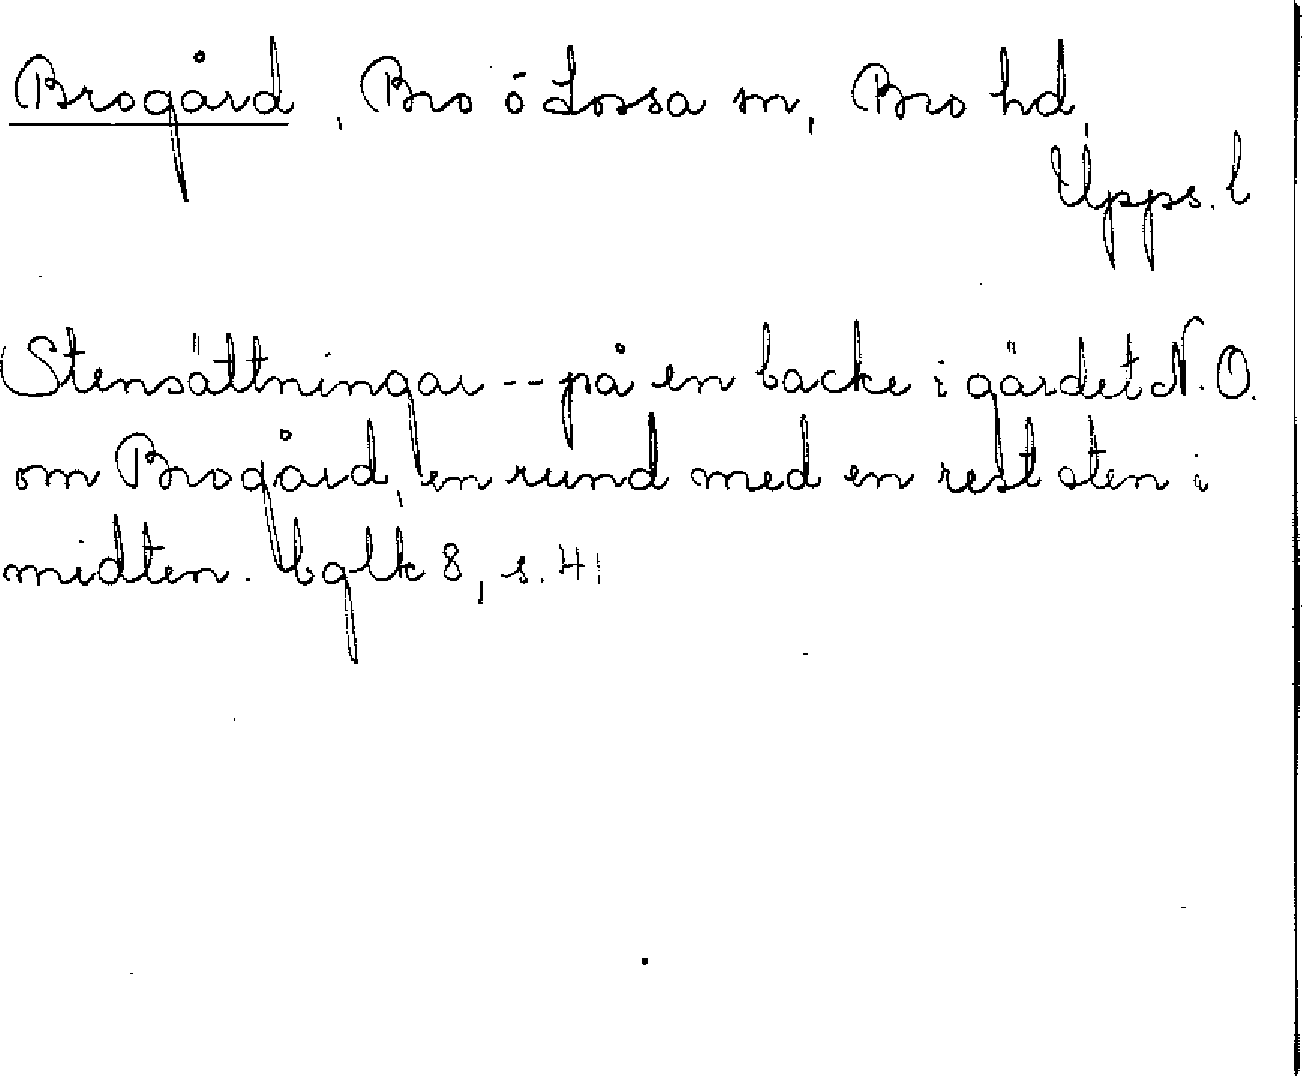 Brogård, Bro o Lossa sn, Bro hd,
Upps. l
Stensättningar -- på en backe i gärdet N.O.
om Brogård, en rund med en rest sten i
midten. Uglk 8, s. 41